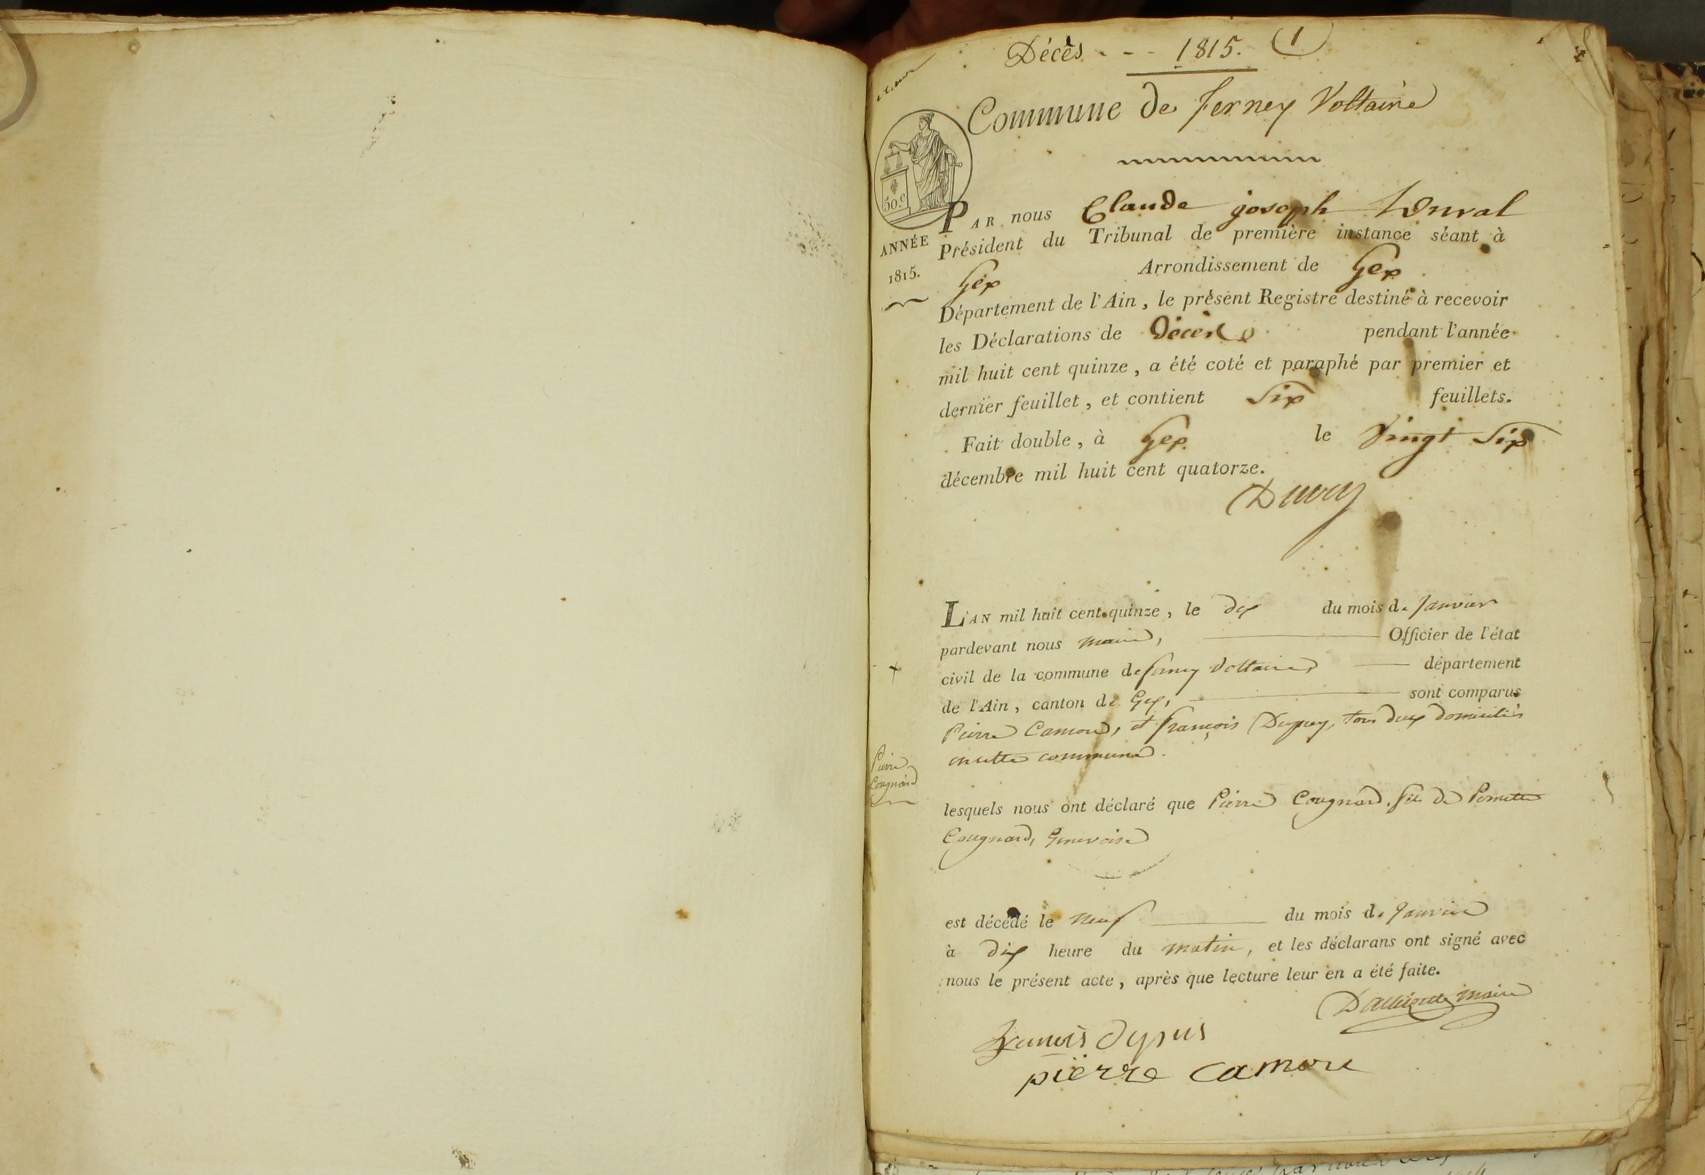 Décès - - - 1815. 1
Commune de Ferney Voltaire
50.c
PAR nous Claude joseph
ANNÉE
1815.
Président du Tribunal de première instance séant à
Gex Arrondissement de Gex
Département de l'Ain, le présent Registre destiné à recevoir
les Déclarations de Décès pendant l'année
mil huit cent quinze, a été coté et paraphé par premier et
dernier feuillet, et contient Six feuillets.
Fait double, à Gex le Vingt Six
décembre mil huit cent quatorze.
L'AN mil huit cent quinze, le dix du mois de Janvier
pardevant nous maire, Officier de l'état
civil de la commune de ferney Voltaire, département
de l'Ain, canton de Gex, sont comparus
Pierre Camore, et françois Dupuy, tous deux domiciliés
en cette commune.
Pierre
Cougnard
lesquels nous ont déclaré que Pierre Cougnard, fils de Pernette
Cougnard, Genevoise
est décédé le neuf du mois de Janvier
à dix heure du matin, et les déclarans ont signé avec
nous le présent acte, après que lecture leur en a été faite.
maire
francois dupuis
pierre camore